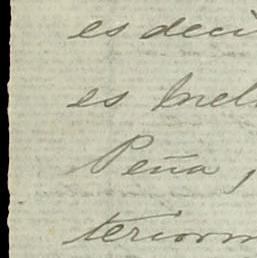 es deci
es Mel
Peña,
teriorm